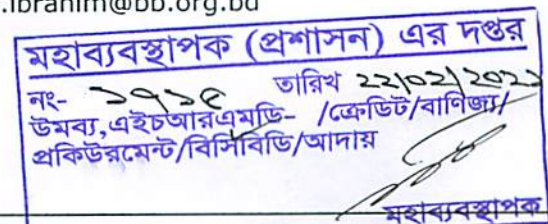 .ibrahim@bb.org.bd
মহাব্যবস্থাপক (প্রশাসন) এর দপ্তর
নং- ১৭১৫ তারিখ ২২/০২/২০২১
উমব্য,এইচআরএমডি- /ক্রেডিট/বাণিজ্য/
প্রকিউরমেন্ট/বিসিবিডি/আদায়
মহাব্যবস্থাপক